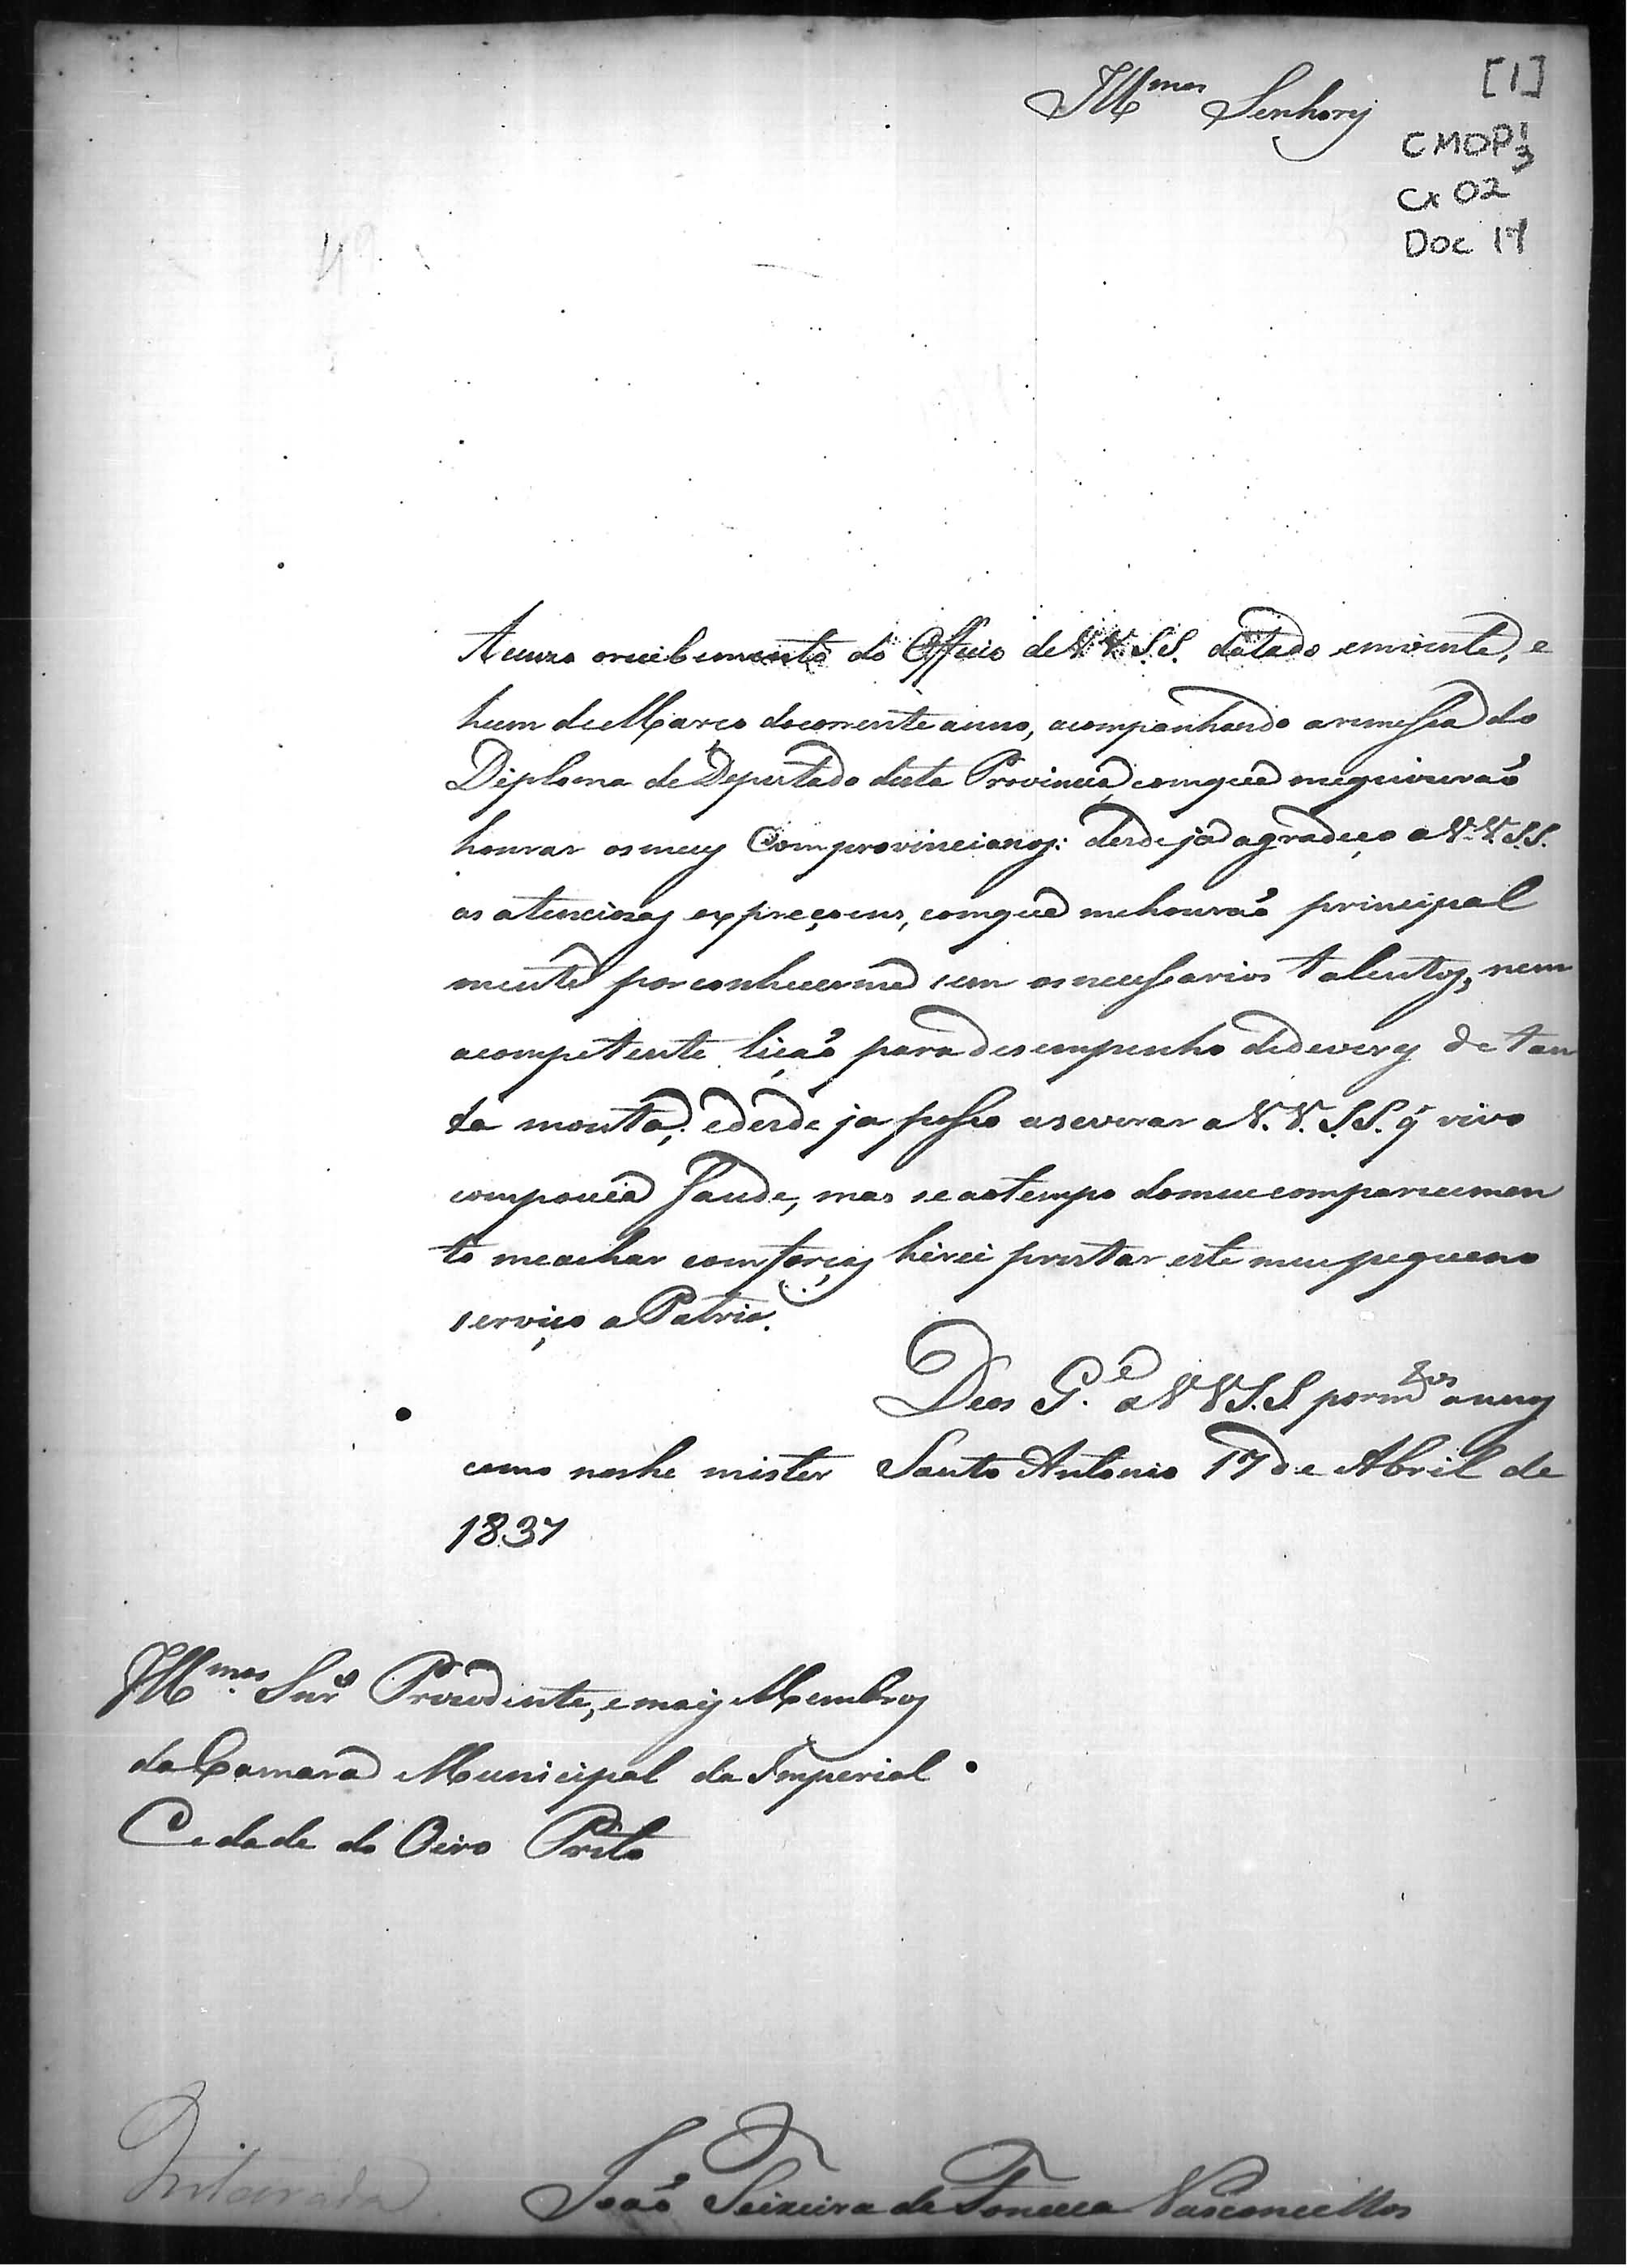 Illmos Senhores
[1]
CMOP 1/3
Cx 02
Doc 17
Acuzo orecibemento do Officio de V.V.S.S. datado emvinte, e
hum de Março docorrente anno, acompanhando aremessa do
Diploma de Deputado desta Provincia, comque mequizerão
honrar osmeus Comprovincianos: desde já agradeço a V.V.S.S.
as atenciozas expreçoens, comque mehonrão principal
mente por conhecerme sem osnecessarios talentos, nem
acompetente lição para desempenho dedeveres de tan
ta monta; edesde ja posso aseverar a V.V.S.S. q' vivo
compouca Saude, mas seaotempo domeucomparecimen
to meachar comforças hirei prestar este meupequeno
serviço a Patria.
Deos G.e a VVS.S. porm.tos annos
como neshe mister Santo Antonio 17 de Abril de
1837
Illmos Snrs Prezedente, emais Membros
da Camara Municipal da Imperial
Cedade do Oiro Preto
Inteirada
João Teixeira da Fonceca Vasconcellos